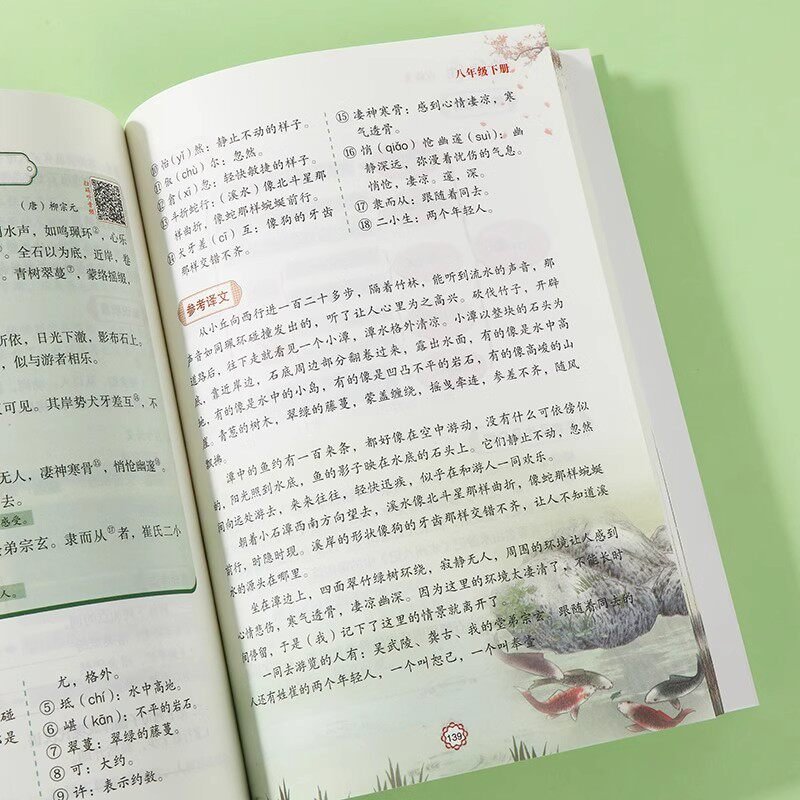 （唐）柳宗元
水声，如鸣珮环②，心乐
。全石以为底，近岸，卷
。青树翠蔓⑦，蒙络摇缀，
所依，日光下澈，影布石上。
，似与游者相乐。
可见。其岸势犬牙差互⑭，不
无人，凄神寒骨⑮，悄怆幽邃⑯。
去。
感受。
弟宗玄。隶而从⑰者，崔氏二小
人。
尤，格外。
⑤坻（chí）：水中高地。
⑥嵁（kān）：不平的岩石。
⑦翠蔓：翠绿的藤蔓。
⑧可：大约。
⑨许：表示约数。
八年级下册
⑩佁（yǐ）然：静止不动的样子。
⑪俶（chù）尔：忽然。
⑫翕（xī）忽：轻快敏捷的样子。
⑬斗折蛇行：（溪水）像北斗星那
样曲折，像蛇那样蜿蜒前行。
⑭犬牙差（cī）互：像狗的牙齿
那样交错不齐。
⑮凄神寒骨：感到心情凄凉，寒
气透骨。
⑯悄（qiǎo）怆幽邃（suì）：幽
静深远，弥漫着忧伤的气息。
悄怆，凄凉。邃，深。
⑰隶而从：跟随着同去。
⑱二小生：两个年轻人。
参考译文
从小丘向西行进一百二十多步，隔着竹林，能听到流水的声音，那
声音如同珮环碰撞发出的，听了让人心里为之高兴。砍伐竹子，开辟
道路后，往下走就看见一个小潭，潭水格外清凉。小潭以整块的石头为
底，靠近岸边，石底周边部分翻卷过来，露出水面，有的像是水中高
地，有的像是水中的小岛，有的像是凹凸不平的岩石，有的像高峻的山
崖。青葱的树木，翠绿的藤蔓，蒙盖缠绕，摇曳牵连，参差不齐，随风
飘拂。
潭中的鱼约有一百来条，都好像在空中游动，没有什么可依傍似
的，阳光照到水底，鱼的影子映在水底的石头上。它们静止不动，忽然
间向远处游去，来来往往，轻快迅疾，似乎在和游人一同欢乐。
朝着小石潭西南方向望去，溪水像北斗星那样曲折，像蛇那样蜿蜒
前行，时隐时现。溪岸的形状像狗的牙齿那样交错不齐，让人不知道溪
水的源头在哪里。
坐在潭边上，四面翠竹绿树环绕，寂静无人，周围的环境让人感到
心情悲伤，寒气透骨，凄凉幽深。因为这里的环境太凄清了，不能长时
间停留，于是（我）记下了这里的情景就离开了。
一同去游览的人有：吴武陵、龚古、我的堂弟宗玄。跟随着同去的
人还有姓崔的两个年轻人，一个叫恕己，一个叫奉壹。
139